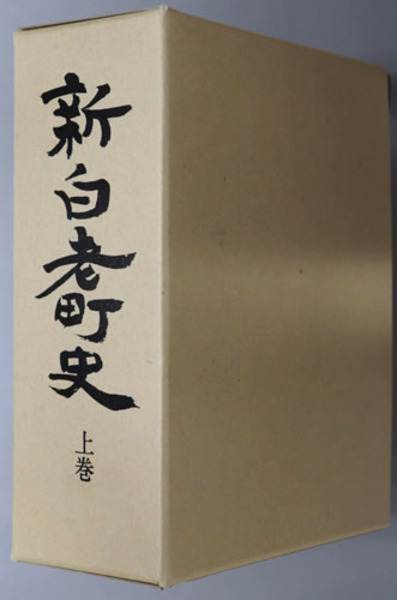 新白老町史
上巻